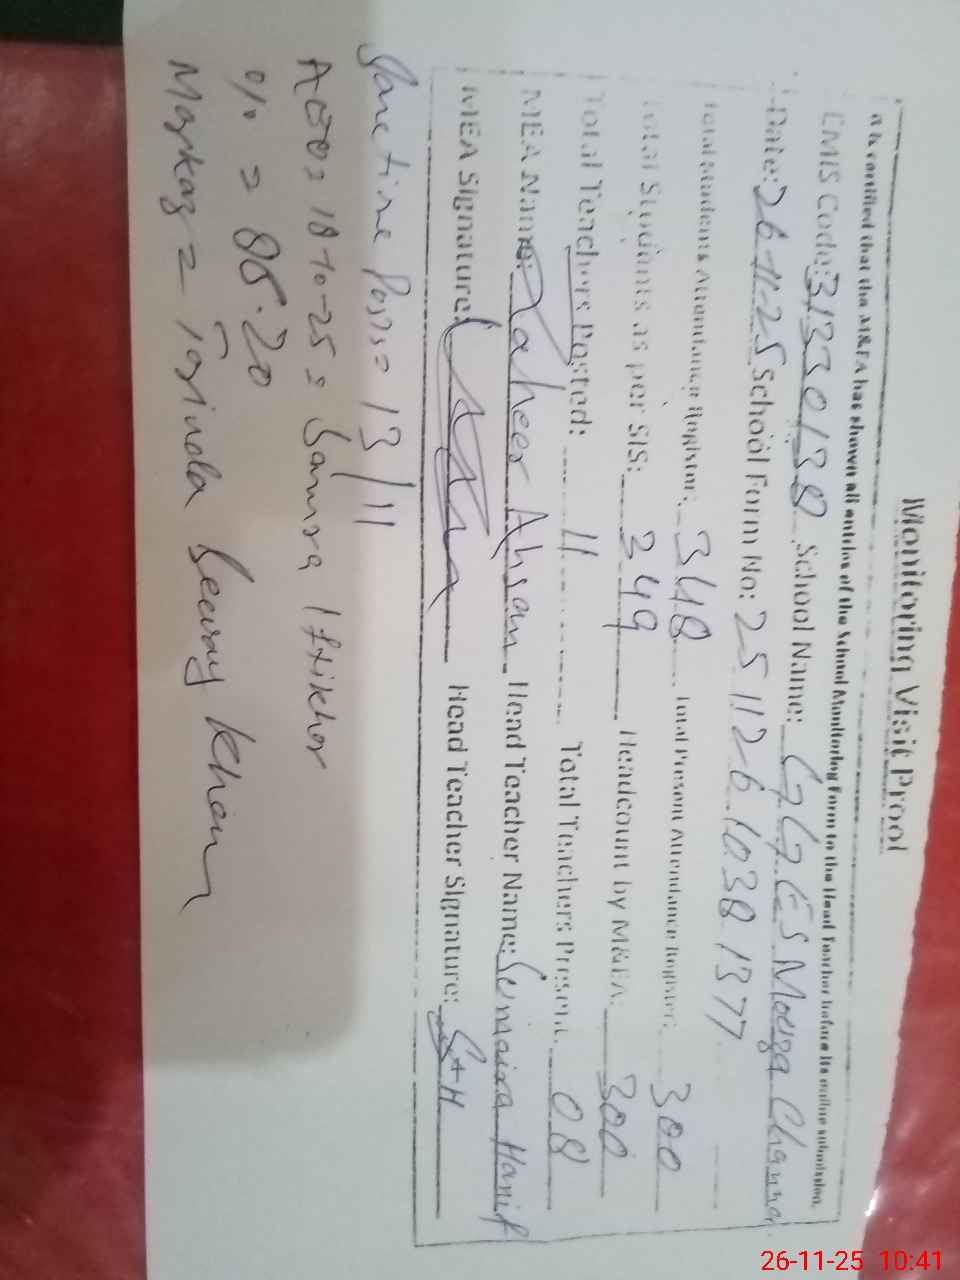 Monitoring Visit Proof
It is certified that the M&EA has shown all entries of the School Monitoring Form to the Head Teacher before its online submission.
EMIS Code: 31330138 School Name: GGES Mouza Channa
Date: 26-11-25 School Form No: 25112610381377
Total Students Attendance Register: 348 Total Present Attendance Register: 300
Total Students as per SIS: 349 Headcount by M&EA: 300
Total Teachers Posted: 11 Total Teachers Present: 08
MEA Name: Zaheer Ahsan Head Teacher Name: Sumaira Hanif
MEA Signature: Head Teacher Signature: S+H
Sanctine Posts = 13/11
AEO = 18-10-25 = Samra Iftikhar
% = 86.20
Markaz = Tarinda Seway Khan
26-11-25 10:41